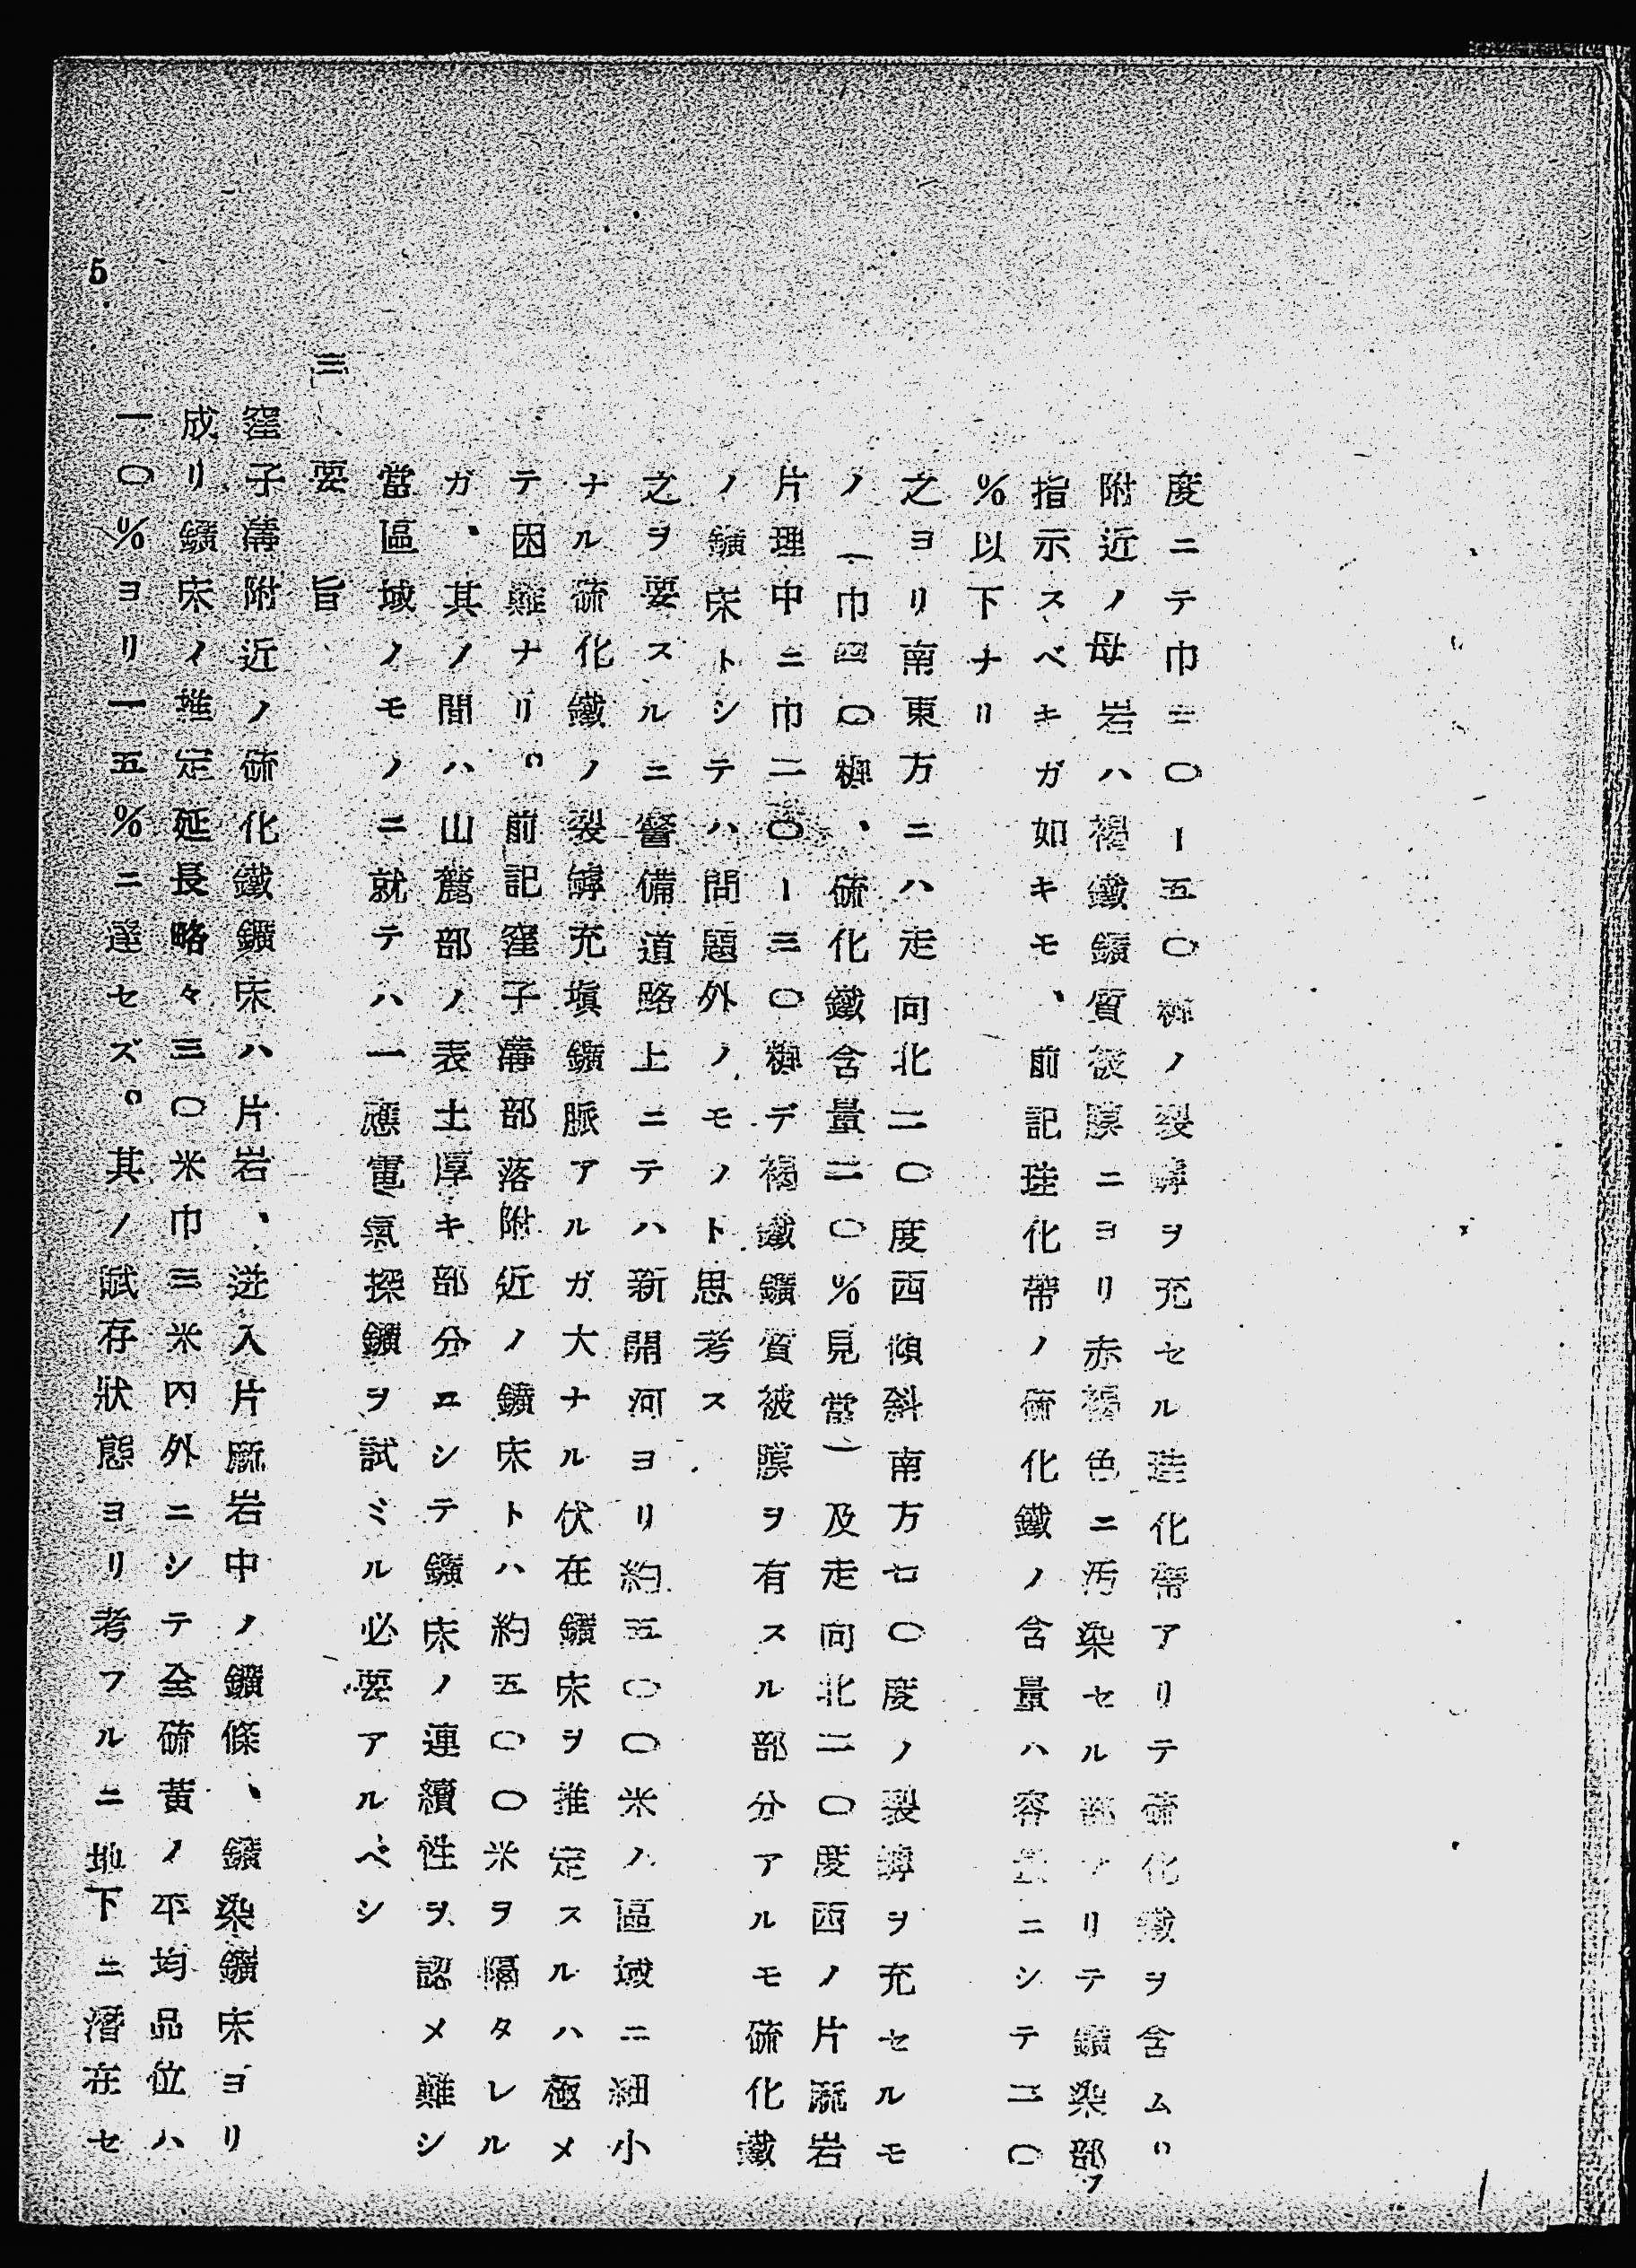 度ニテ巾三〇ー五〇糎ノ裂罅ヲ充セル珪化帶アリテ硫化鐵ヲ含ム。
附近ノ母岩ハ褐鐵鑛質被膜ニヨリ赤褐色ニ汚染セル部アリテ鑛染部ヲ
指示スベキガ如キモ、前記珪化帶ノ硫化鐵ノ含量ハ容量ニシテ二〇
%以下ナリ
之ヨリ南東方ニハ走向北二〇度西傾斜南方七〇度ノ裂罅ヲ充セルモ
ノ（巾四〇糎、硫化鐵含量二〇%見當）及走向北二〇度西ノ片麻岩
片理中ニ巾二〇ー三〇糎デ褐鐵鑛質被膜ヲ有スル部分アルモ硫化鐵
ノ鑛床トシテハ問題外ノモノト思考ス
之ヲ要スルニ警備道路上ニテハ新開河ヨリ約五〇〇米ノ區域ニ細小
ナル硫化鐵ノ裂罅充塡鑛脈アルガ大ナル伏在鑛床ヲ推定スルハ極メ
テ困難ナリ。前記窪子溝部落附近ノ鑛床トハ約五〇〇米ヲ隔タレル
ガ、其ノ間ハ山麓部ノ表土厚キ部分ニシテ鑛床ノ連續性ヲ認メ難シ
當區域ノモノニ就テハ一應電氣探鑛ヲ試ミル必要アルベシ
三、要旨
窪子溝附近ノ硫化鐵鑛床ハ片岩、迸入片麻岩中ノ鑛條、鑛染鑛床ヨリ
成リ鑛床ノ推定延長略々三〇米巾三米內外ニシテ全硫黃ノ平均品位ハ
一〇%ヨリ一五%ニ達セズ。其ノ賦存狀態ヨリ考フルニ地下ニ潛在セ
5